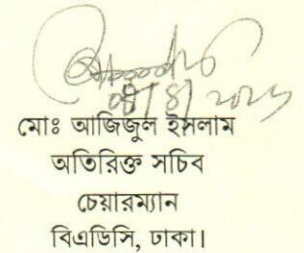 মোঃ আজিজুল ইসলাম
অতিরিক্ত সচিব
চেয়ারম্যান
বিএডিসি, ঢাকা।